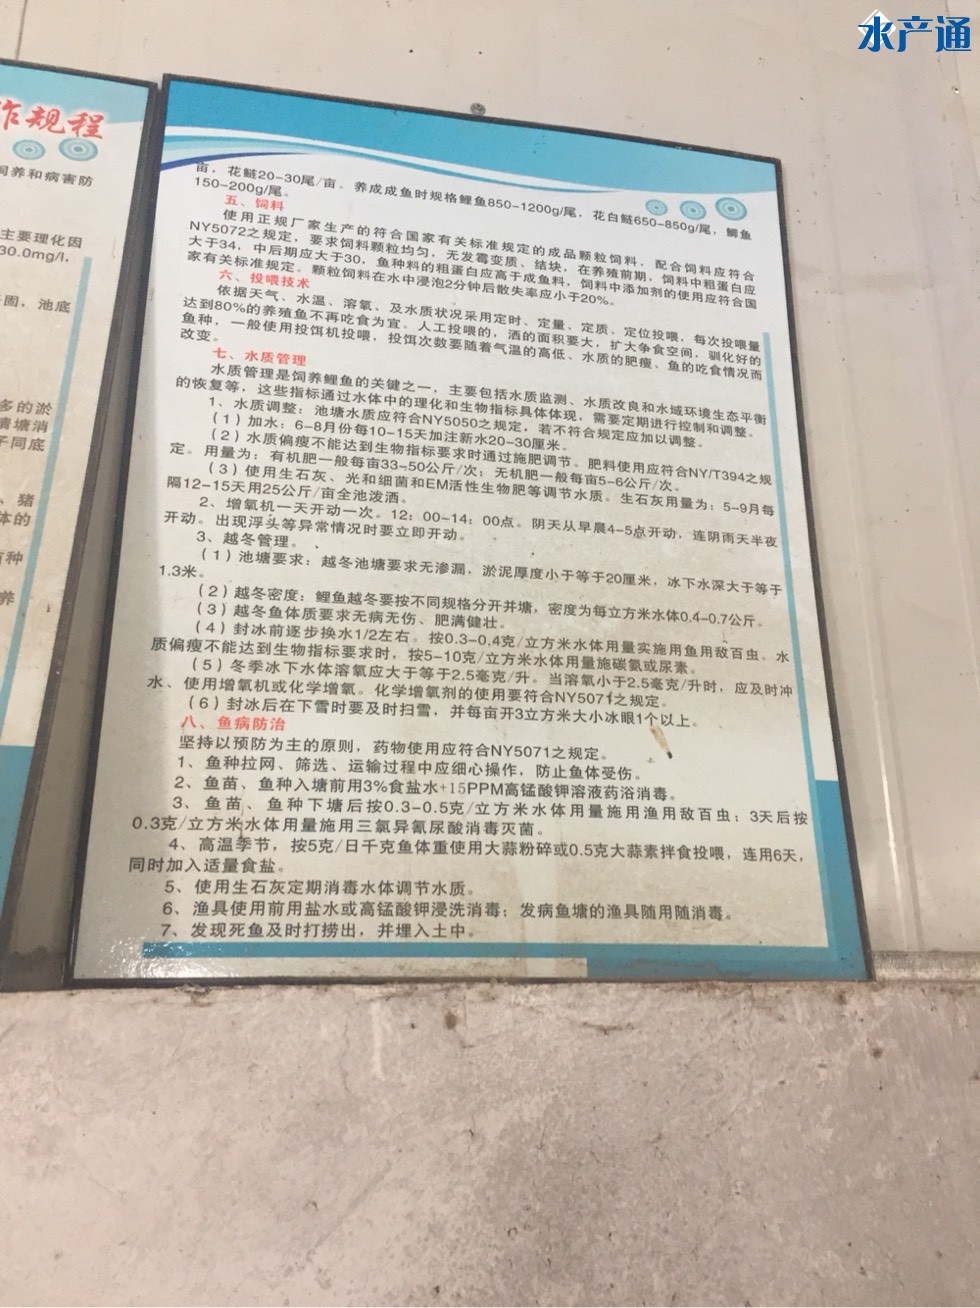 水产通
作规程
饲养和病害防
主要理化因
30.0mg/l.
固，池底
多的淤
清塘消
子同底
、猪
体的
有种
养
亩，花鲢20-30尾/亩。养成成鱼时规格鲤鱼850-1200g/尾，花白鲢650-850g/尾，鲫鱼
150-200g/尾。
五、饲料
使用正规厂家生产的符合国家有关标准规定的成品颗粒饲料，配合饲料应符合
NY5072之规定，要求饲料颗粒均匀，无发霉变质、结块，在养殖前期，饲料中粗蛋白应
大于34，中后期应大于30，鱼种料的粗蛋白应高于成鱼料，饲料中添加剂的使用应符合国
家有关标准规定。颗粒饲料在水中浸泡2分钟后散失率应小于20%。
六、投喂技术
依据天气、水温、溶氧、及水质状况采用定时、定量、定质、定位投喂，每次投喂量
达到80%的养殖鱼不再吃食为宜。人工投喂的，洒的面积要大，扩大争食空间，驯化好的
鱼种，一般使用投饵机投喂，投饵次数要随着气温的高低、水质的肥瘦、鱼的吃食情况而
改变。
七、水质管理
水质管理是饲养鲤鱼的关键之一，主要包括水质监测、水质改良和水域环境生态平衡
的恢复等，这些指标通过水体中的理化和生物指标具体体现，需要定期进行控制和调整。
1、水质调整：池塘水质应符合NY5050之规定，若不符合规定应加以调整。
（1）加水：6-8月份每10-15天加注新水20-30厘米。
（2）水质偏瘦不能达到生物指标要求时通过施肥调节。肥料使用应符合NY/T394之规
定。用量为：有机肥一般每亩33-50公斤/次；无机肥一般每亩5-6公斤/次。
（3）使用生石灰、光和细菌和EM活性生物肥等调节水质。生石灰用量为：5-9月每
隔12-15天用25公斤/亩全池泼洒。
2、增氧机一天开动一次。12：00-14：00点。阴天从早晨4-5点开动，连阴雨天半夜
开动。出现浮头等异常情况时要立即开动。
3、越冬管理。
（1）池塘要求：越冬池塘要求无渗漏，淤泥厚度小于等于20厘米，冰下水深大于等于
1.3米。
（2）越冬密度：鲤鱼越冬要按不同规格分开并塘，密度为每立方米水体0.4-0.7公斤。
（3）越冬鱼体质要求无病无伤、肥满健壮。
（4）封冰前逐步换水1/2左右。按0.3-0.4克/立方米水体用量实施用鱼用敌百虫。水
质偏瘦不能达到生物指标要求时，按5-10克/立方米水体用量施碳氨或尿素。
（5）冬季冰下水体溶氧应大于等于2.5毫克/升。当溶氧小于2.5毫克/升时，应及时冲
水、使用增氧机或化学增氧。化学增氧剂的使用要符合NY5071之规定。
（6）封冰后在下雪时要及时扫雪，并每亩开3立方米大小冰眼1个以上。
八、鱼病防治
坚持以预防为主的原则，药物使用应符合NY5071之规定。
1、鱼种拉网、筛选、运输过程中应细心操作，防止鱼体受伤。
2、鱼苗、鱼种入塘前用3%食盐水+15PPM高锰酸钾溶液药浴消毒。
3、鱼苗、鱼种下塘后按0.3-0.5克/立方米水体用量施用渔用敌百虫；3天后按
0.3克/立方米水体用量施用三氯异氰尿酸消毒灭菌。
4、高温季节，按5克/日千克鱼体重使用大蒜粉碎或0.5克大蒜素拌食投喂，连用6天，
同时加入适量食盐。
5、使用生石灰定期消毒水体调节水质。
6、渔具使用前用盐水或高锰酸钾浸洗消毒；发病鱼塘的渔具随用随消毒。
7、发现死鱼及时打捞出，并埋入土中。